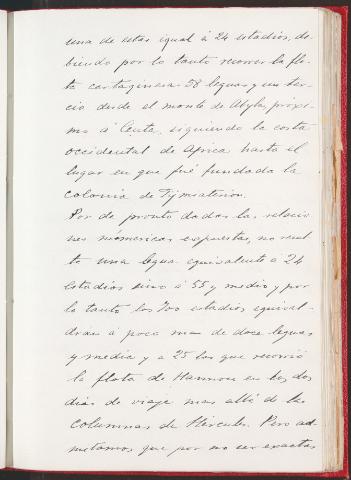 una de estas igual á 24 estadios, de-
biendo por lo tanto recorrer la flo-
ta cartaginesa 58 leguas y un ter-
cio desde el monte de Abyla próxi-
mo á Ceuta, siguiendo la costa
occidental de Africa hasta el
lugar en que fué fundada la
colonia de Tymiaterion.
Por de pronto dadas las relacio
nes númericas expuestas, no resul
ta una legua equivalente á 24
estadios sino á 55 y medio y por
lo tanto los 700 estadios equival-
drán á poco mas de doce leguas
y media y a 25 las que recorrió
la flota de Hannon en los dos
dias de viaje mas allá de las
Columnas de Hércules. Pero ad-
mitamos que por no ser exactas